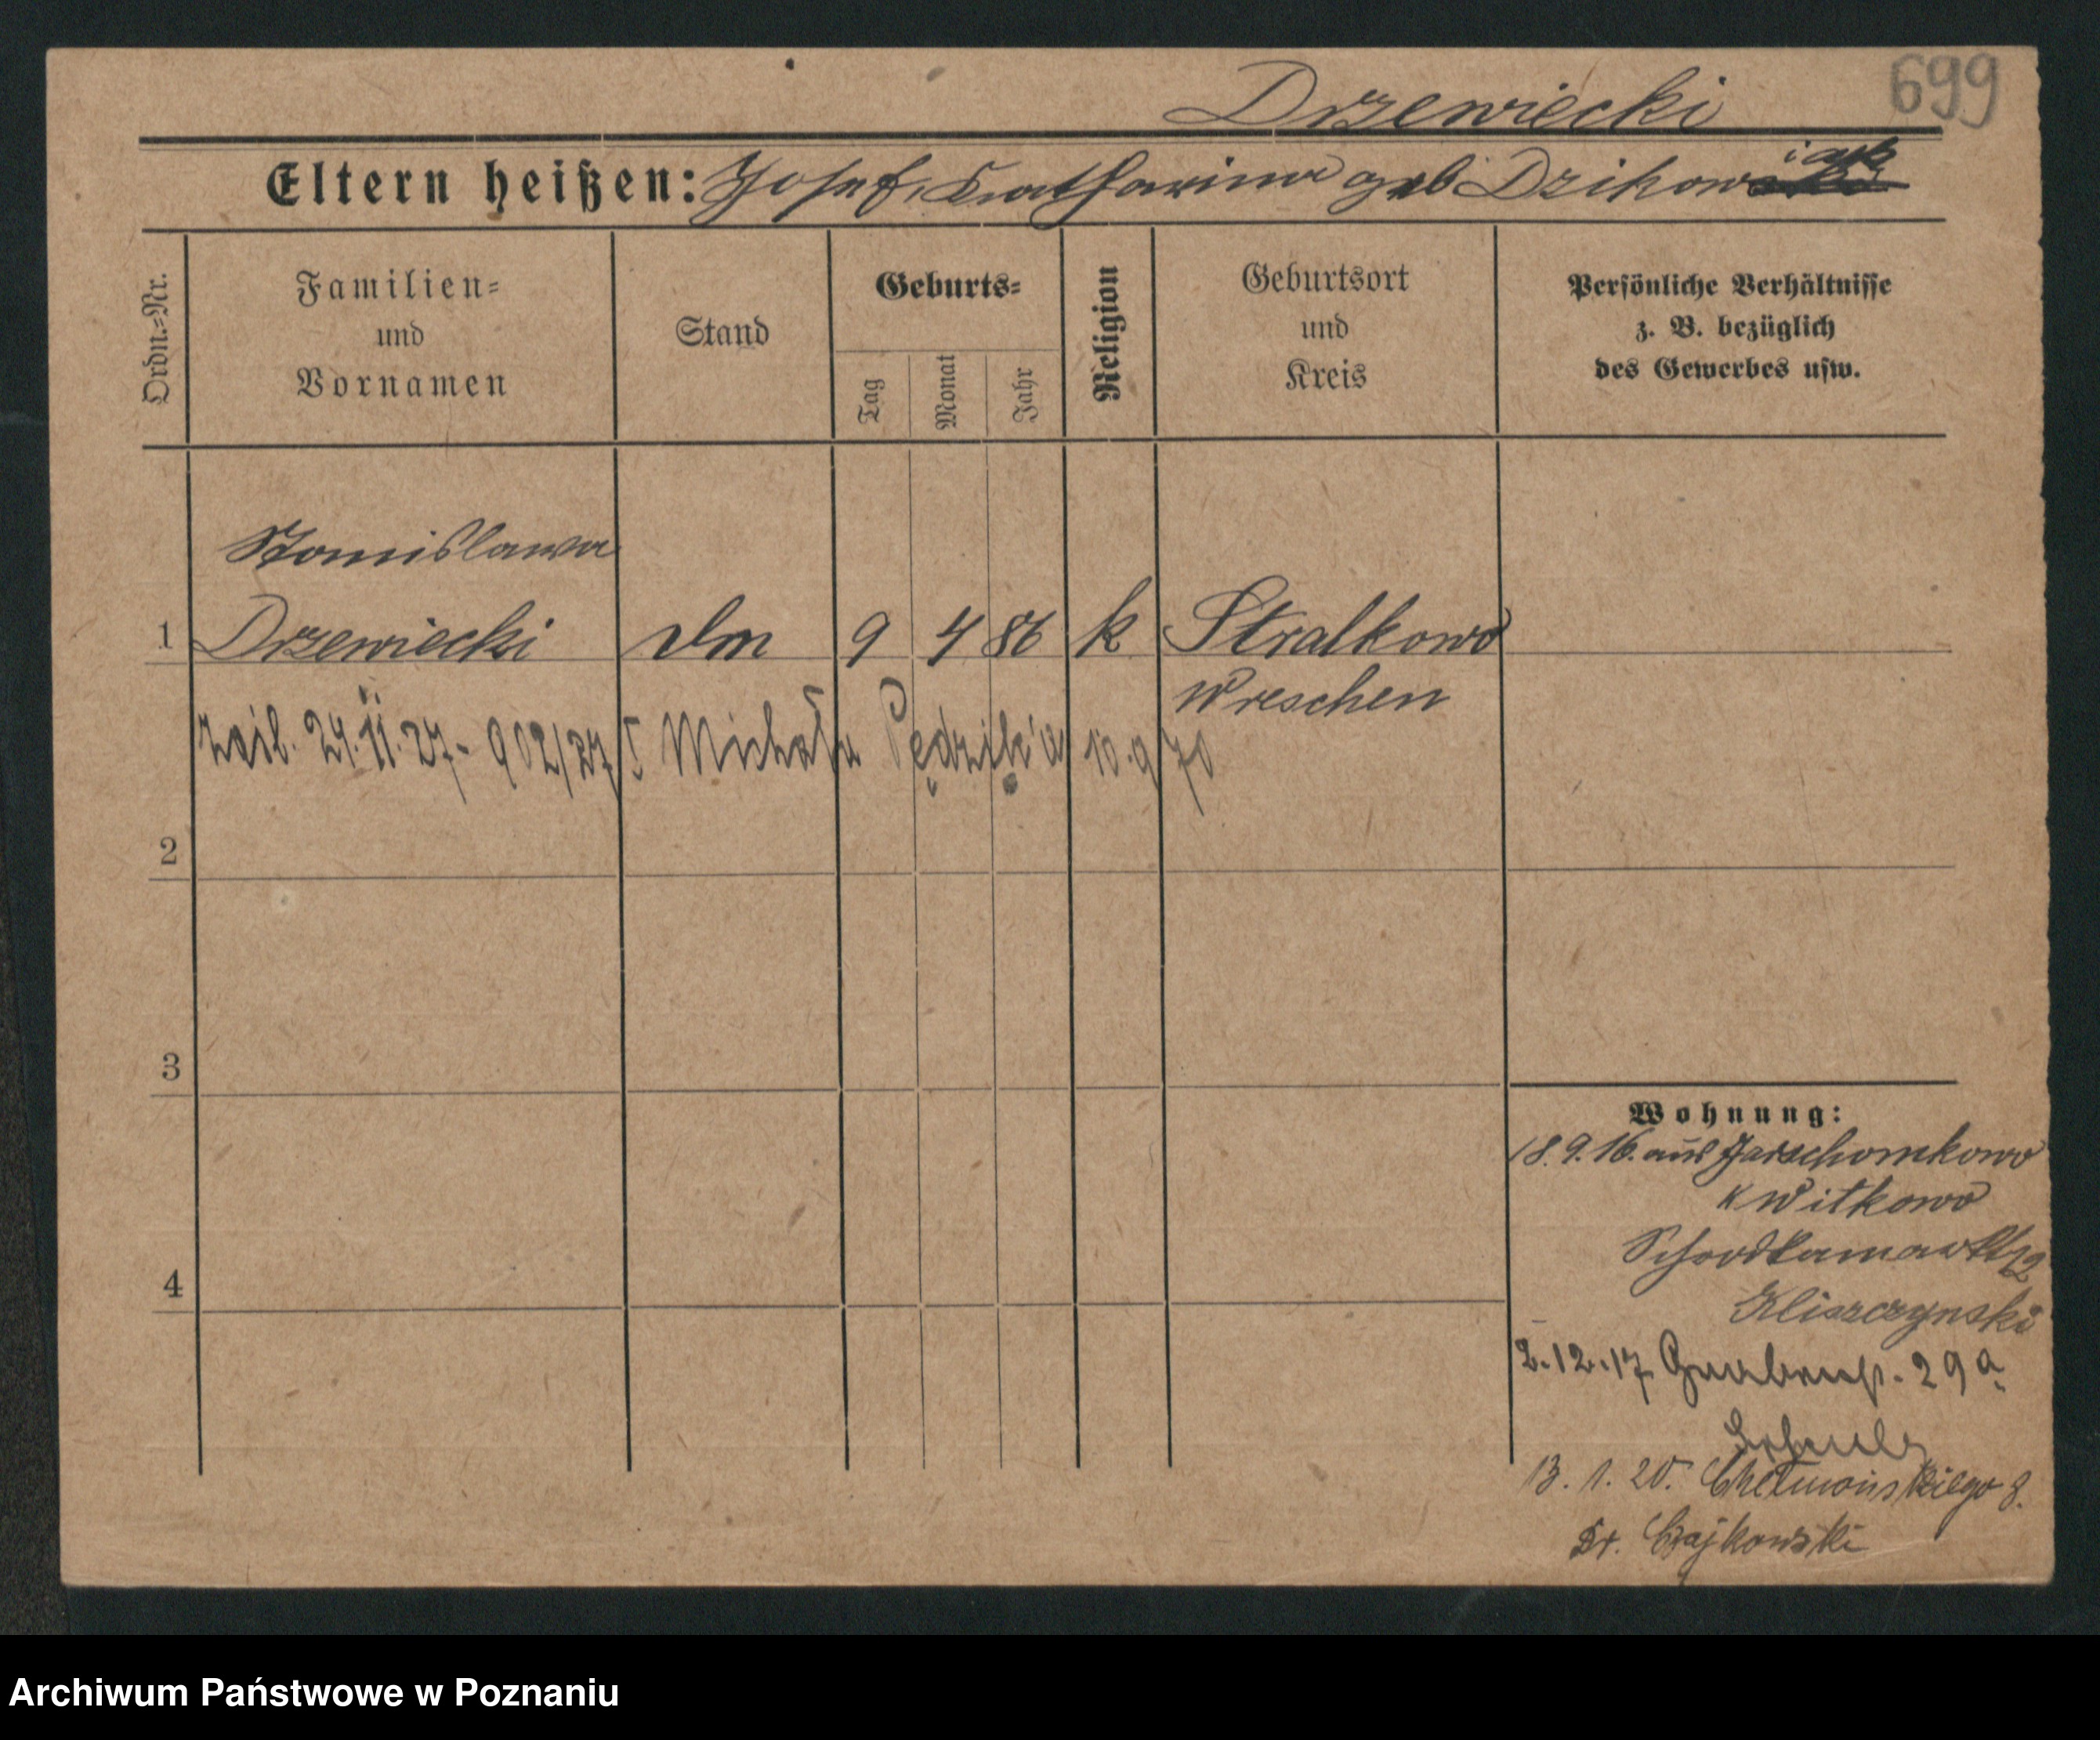 699
Drzewiecki
Eltern heißen: Josef, Katharina geb Dzikowiak
Ordn.-Nr.
Familien- und Vornamen
Stand
Geburts-
Tag
Monat
Jahr
Religion
Geburtsort und Kreis
Persönliche Verhältnisse z. B. bezüglich des Gewerbes usw.
Stanislawa
1 Drzewiecki Dm 9 4 86 k Stralkowo
Wreschen
24.11.27 - 902/27 Michała 10.9 70
2
3
4
Wohnung:
18.9.16. aus Jarschomkowo
K Witkowo
Schrodkamarkt 12
Kliszczynski
2.12.17 Grabenstr. 29a
13. 1. 20. Chełmońskiego 8.
Dr. Czajkowski
Archiwum Państwowe w Poznaniu